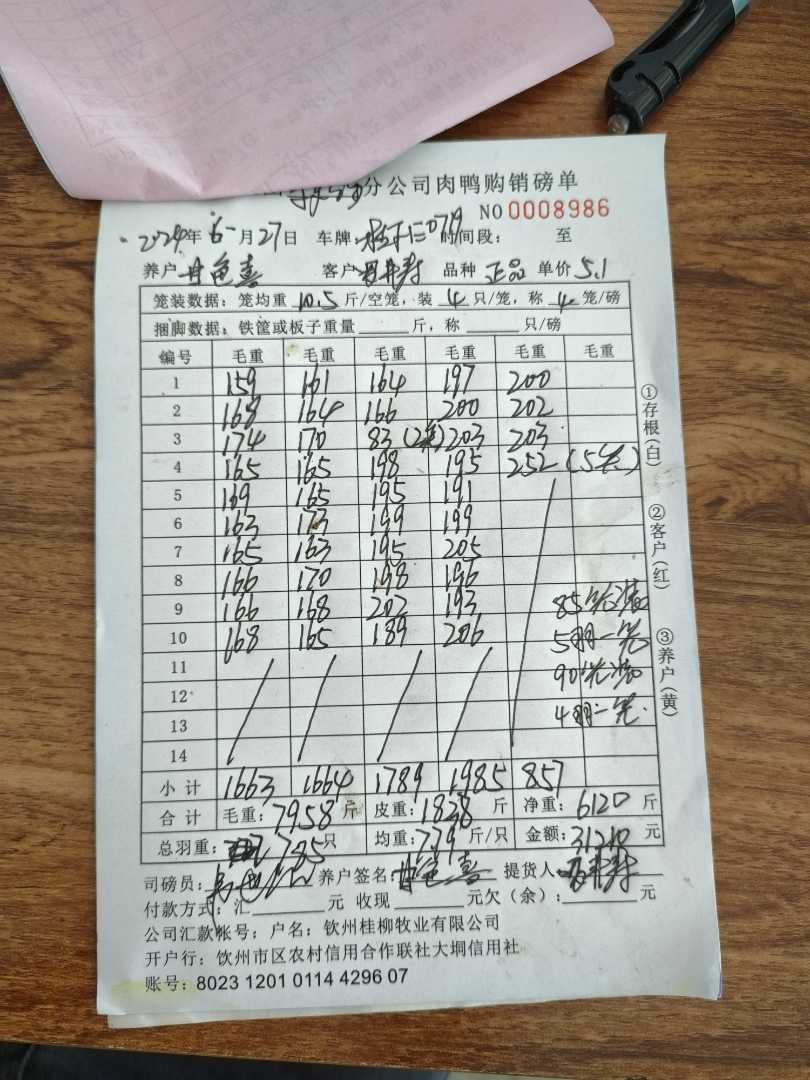 分公司肉鸭购销磅单
NO 0008986
2024年 6 月 27日 车牌 时间段: 至
养户 甘色喜 客户 品种 正品 单价 5.1
笼装数据: 笼均重 10.5 斤/空笼, 装 4 只/笼, 称 4 笼/磅
捆脚数据: 铁筐或板子重量 斤, 称 只/磅
编号 毛重 毛重 毛重 毛重 毛重 毛重
1 159 161 164 197 200
2 168 164 166 200 202
3 174 170 83 (2笼) 203 203
4 165 165 198 195 252 (5笼)
5 169 165 195 191
6 163 173 199 199
7 165 163 195 205
8 166 170 198 196
9 166 168 202 193 85笼装
10 168 165 189 206 5羽一笼
11 90笼装
12 4羽一笼
13
14
小计 1663 1664 1789 1985 857
合计 毛重: 7958 斤 皮重: 1828 斤 净重: 6120 斤
总羽重: 785 只 均重: 7.79 斤/只 金额: 31210 元
司磅员: 养户签名: 甘色喜 提货人
付款方式: 汇 元 收现 元欠(余): 元
公司汇款帐号; 户名: 钦州桂柳牧业有限公司
开户行: 钦州市区农村信用合作联社大垌信用社
账号: 8023 1201 0114 4296 07
①存根(白)
②客户(红)
③养户(黄)